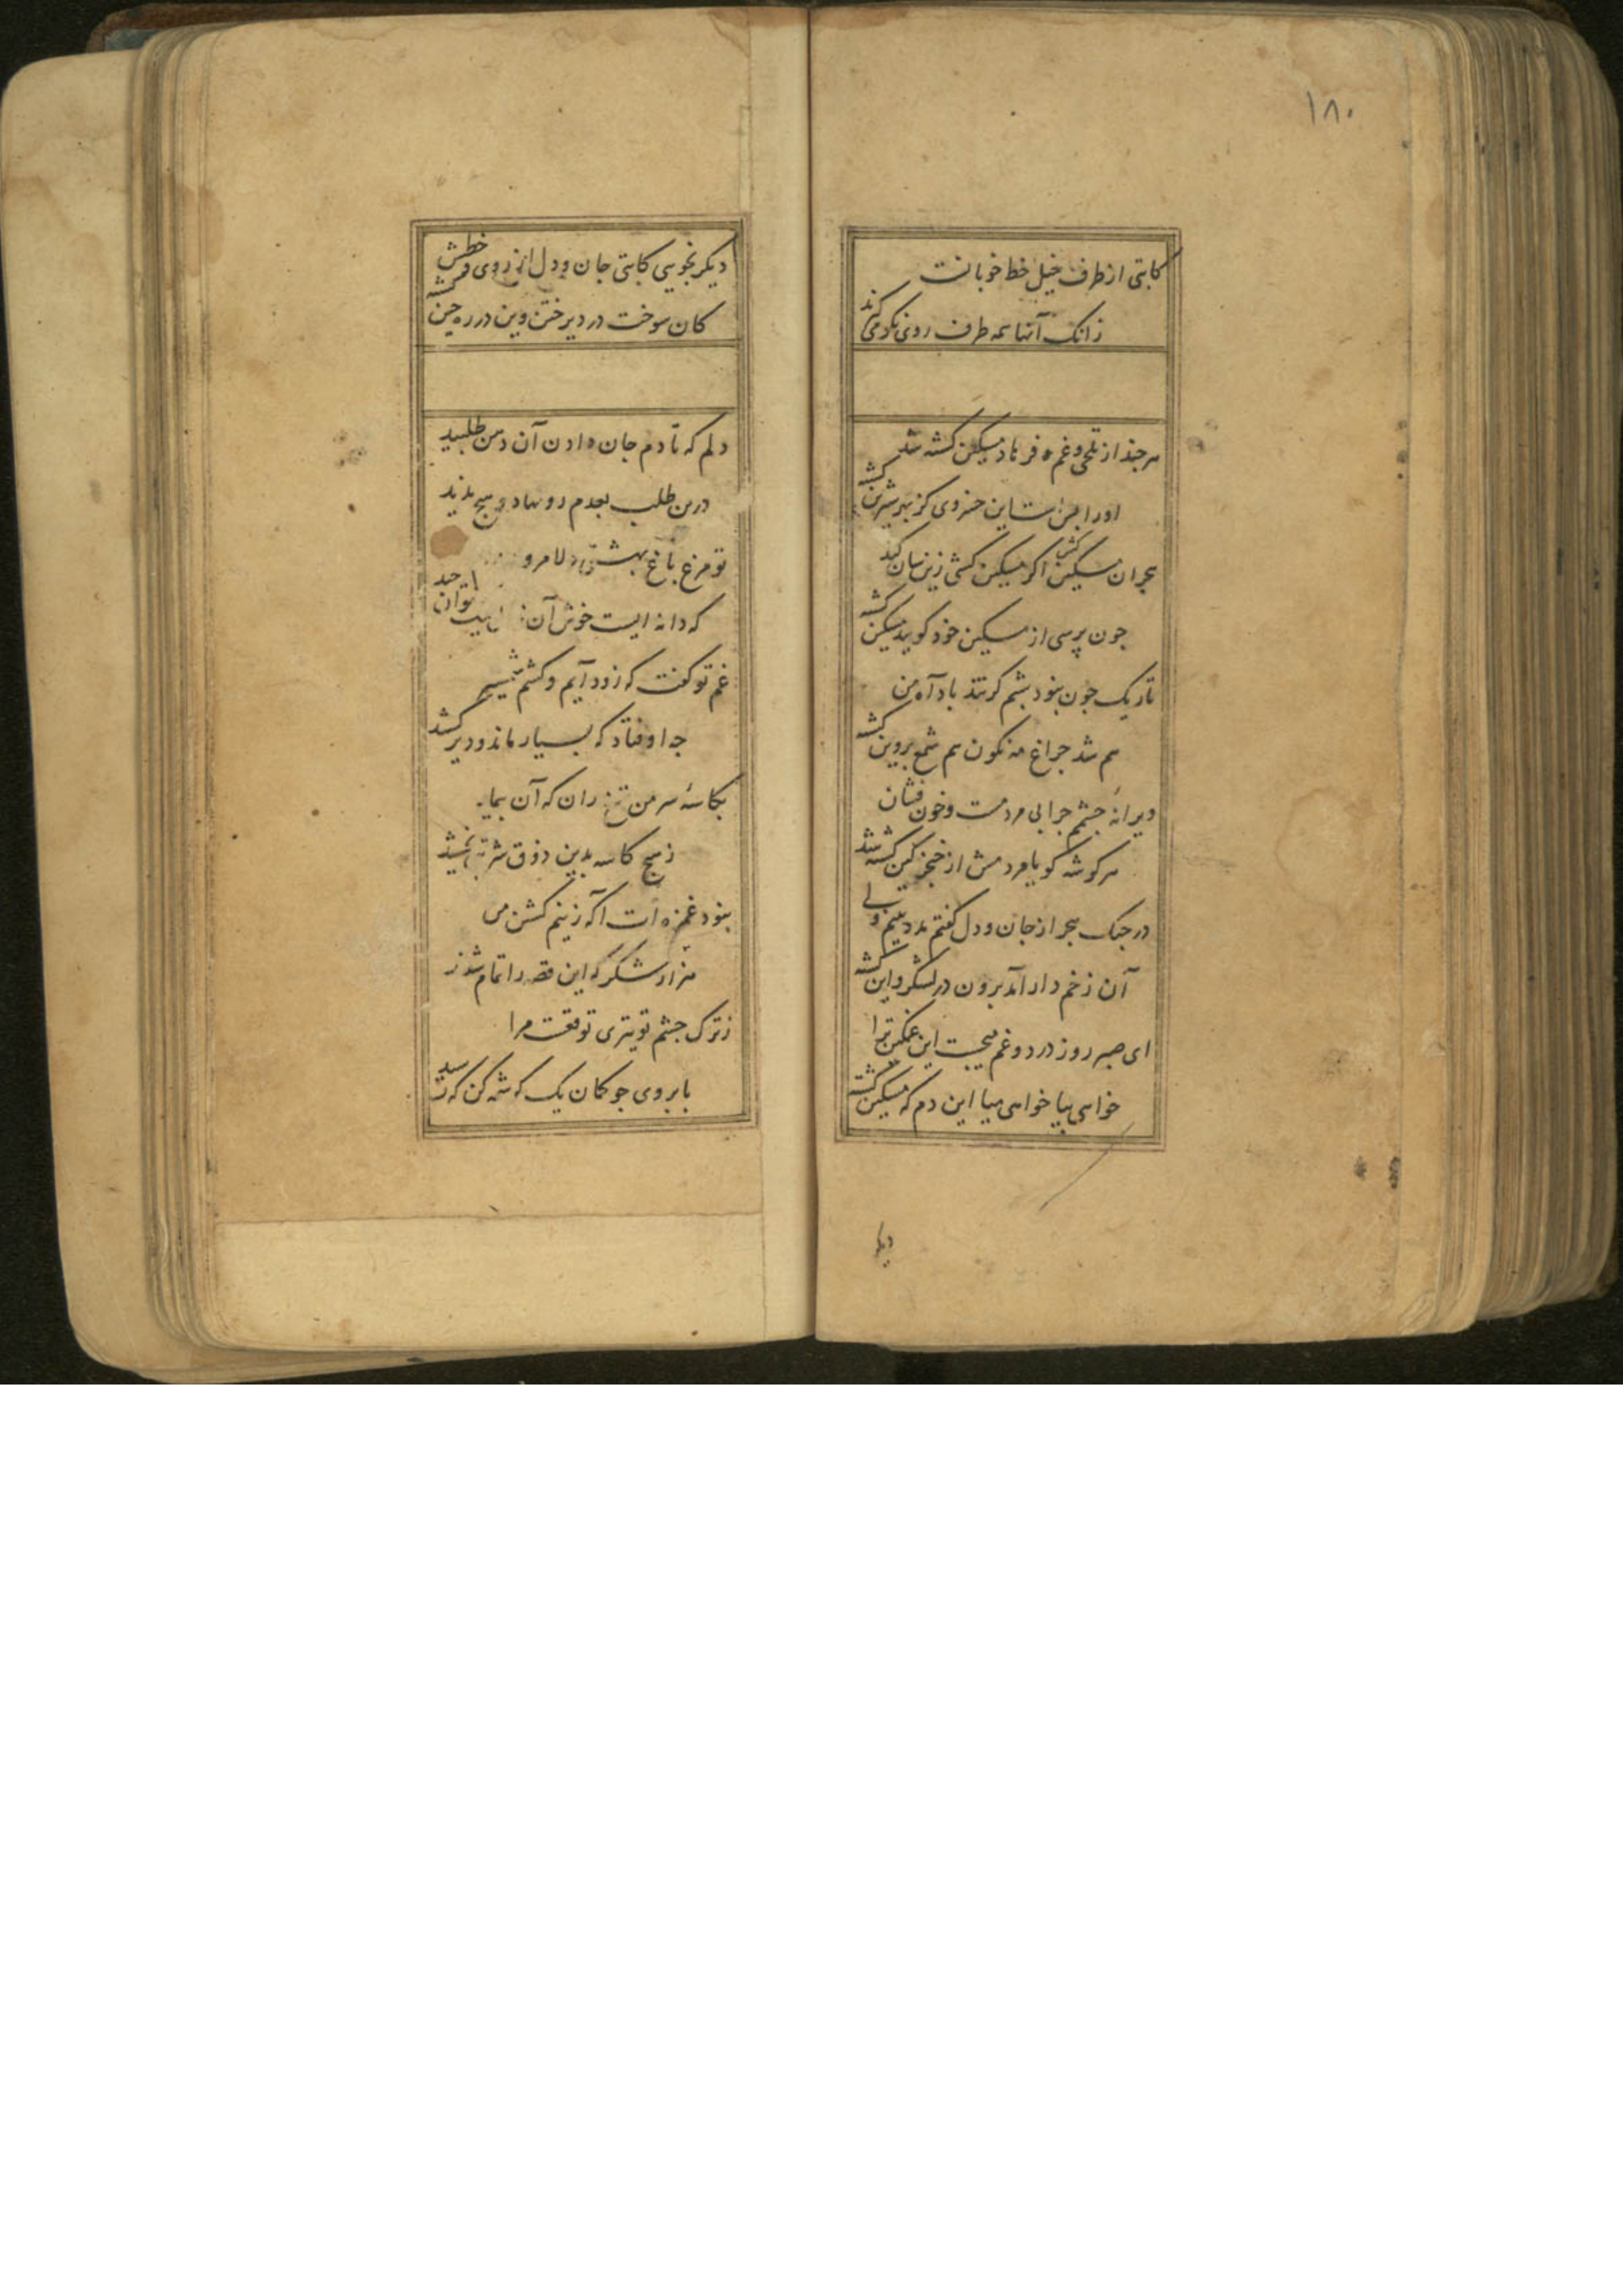 ۱۸۰
کاتبی از طرف خیل خط خوبانست
زانک آنها همه طرف روی نکو می کرند
هر چند از تلخی و غم فرهاد مسکین کشته شد
او را بس است این خسروی کز بهر شیرین کشته شد
هجران مسکین کش اکر مسکین کشی زینسان کند
چون پرسی از مسکین خود کوید که مسکین کشته شد
تاریک چون نبود شبم کز تند باد آه من
هم شد چراغ مه نکون هم شمع پروین کشته شد
ویرانهٔ چشمم خرابی مردمست و خون فشان
هر کوشه کویا مردمش از خنجر کین کشته شد
در جنک هجر از جان و دل کفتم مدد بینم ولی
آن زخم دار آمد برون در لشکر و این کشته شد
ای صبر روز درد و غم میجست این غمکین ترا
خواهی بیا خواهی میا این دم که مسکین کشته شد
دیکر
دیکر نجویی کاتبی جان و دل از روی خطش
کان سوخت در دیر ختن وین در ره چین کشته شد
دلم که تا دم جان دادن آن دهن طلبید
درین طلب بعدم رو نهاد و هیچ ندید
تو مرغ باغ بهشتی دلا مرو
که دانه ایست خوش آن توان چید
غم تو کفت که زود آیم و کشم شمشیر
چه اوفتاد که بسیار ماند و دیر کشید
بکاسهٔ سر من تیغ ران که آن
ز هیچ کاسه بدین ذوق شربتی نچشید
نبود غمزه ات آکه ز نیم کشتن من
هزار شکر که این قصه را تمام شنید
ز ترک چشم تو تیری توقعست مرا
بابروی چو کمان یک کرشمه کن که رسید